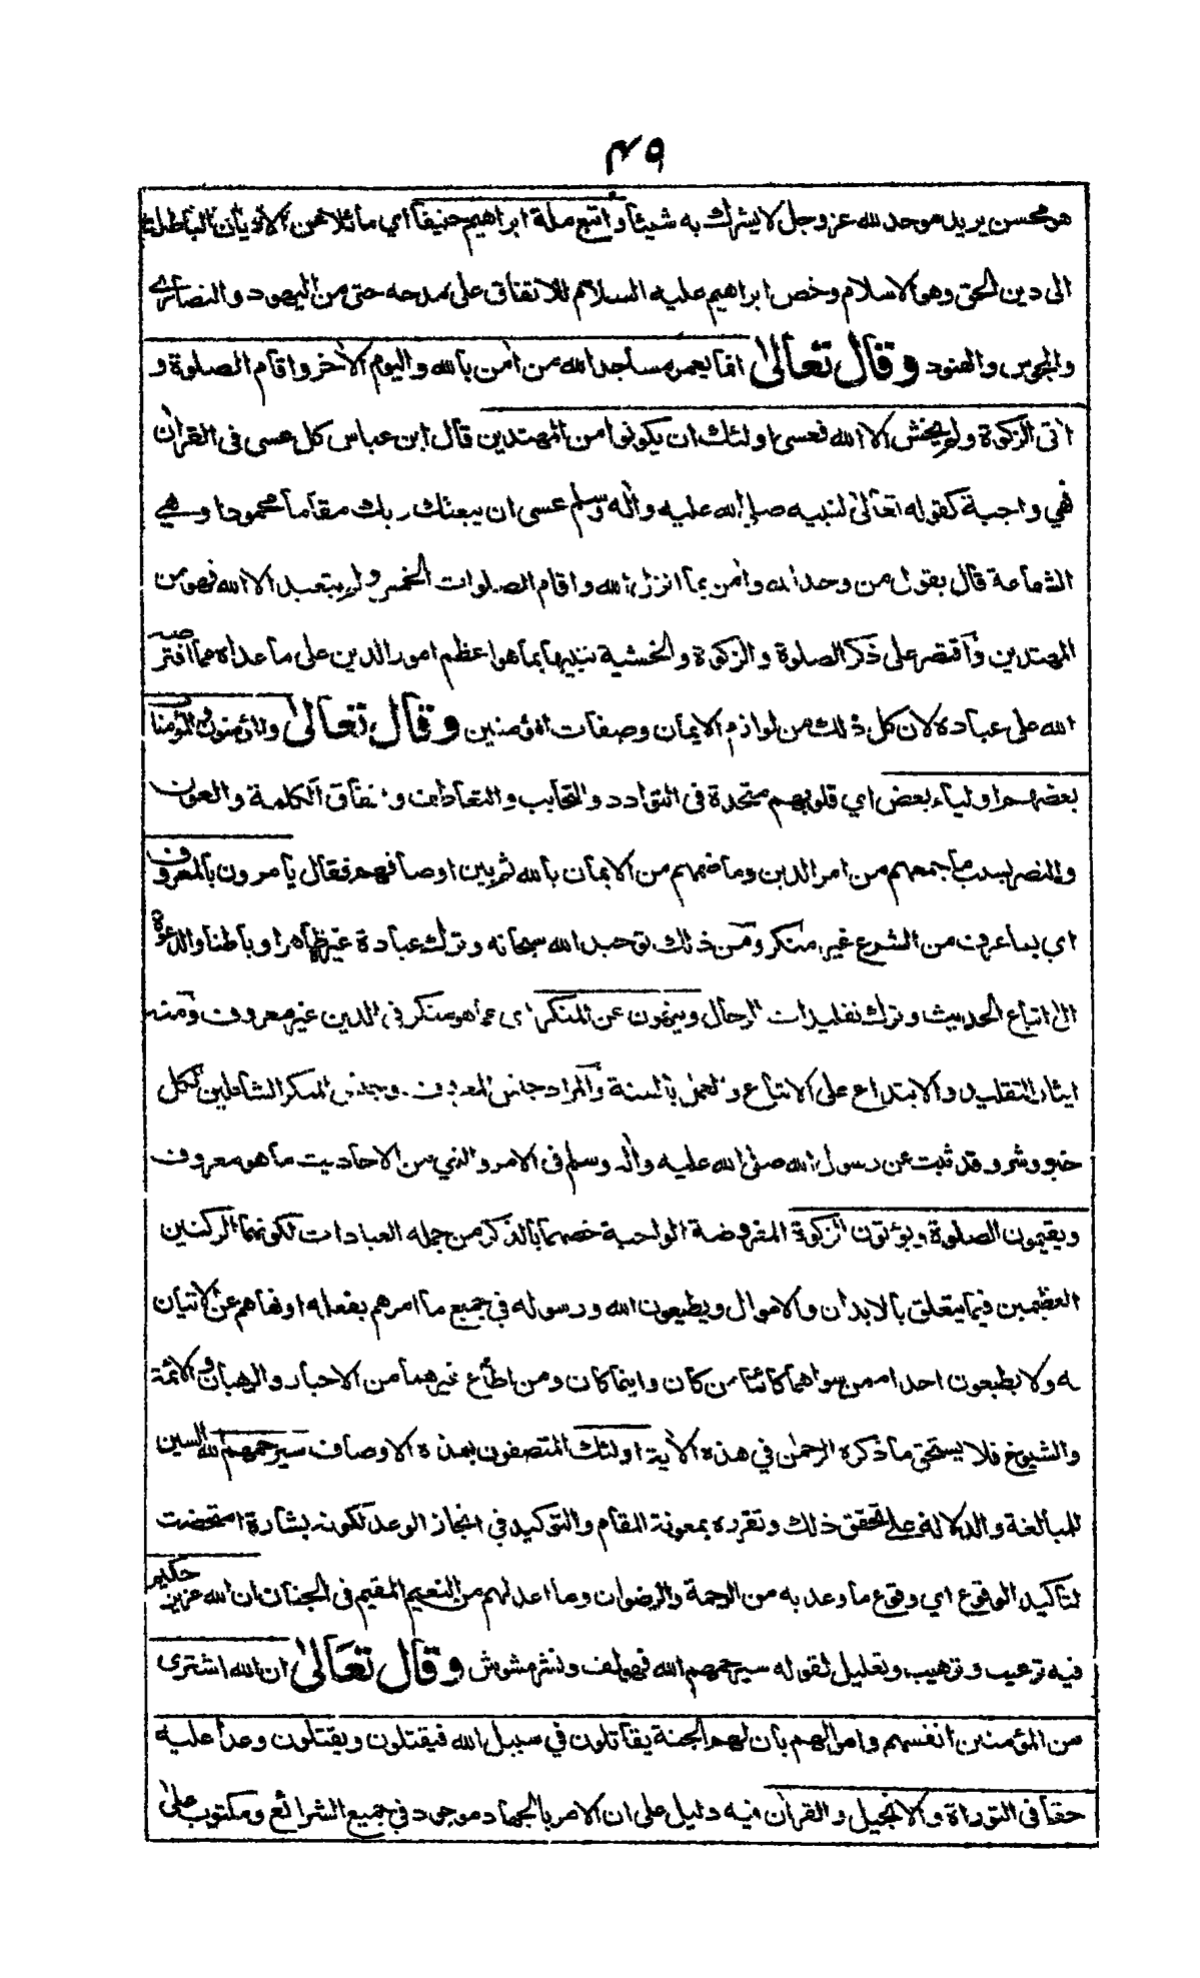 ٤٩
هو محسن يريد موحد لله عز وجل لا يشرك به شيئا واتبع ملة ابراهيم حنيفا اي مائلا عن الاديان الباطلة
الى دين الحق وهو الاسلام وخص ابراهيم عليه السلام للاتفاق على مدحه حتى من اليهود والنصارى
والمجوس والهنود وقال تعالى انما يعمر مساجد الله من امن بالله واليوم الاخر واقام الصلوة و
اتى الزكوة ولم يخش الا الله فعسى اولئك ان يكونوا من المهتدين قال ابن عباس كل عسى فى القران
فهي واجبة كقوله تعالى لنبيه صلى الله عليه واله وسلم عسى ان يبعثك ربك مقاما محمودا وهي
الشفاعة قال يقول من وحد الله وامن بما انزل الله واقام الصلوات الخمس ولم يتعبد الا الله فهو من
المهتدين واقتصر على ذكر الصلوة والزكوة والخشية تنبيها بما هو اعظم امور الدين على ما عداه مما افترضه
الله على عباده لان كل ذلك من لوازم الايمان وصفات المؤمنين وقال تعالى والمؤمنون والمؤمنات
بعضهم اولياء بعض اي قلوبهم متحدة فى التوادد والتحابب والتعاطف واتفاق الكلمة والعون
والنصر بسبب ما جمعهم من امر الدين وما ضمهم من الايمان بالله ثم بين اوصافهم فقال يامرون بالمعروف
اي بما عرف من الشرع غير منكر ومن ذلك توحيد الله سبحانه وترك عبادة غيره ظاهرا وباطنا والدعوة
الى اتباع الحديث وترك تقليدات الرجال وينهون عن المنكر اى عما هو منكر فى الدين غير معروف ومنه
ايثار التقليد والابتداع على الاتباع والعمل بالسنة والمراد جنس المعروف وجنس المنكر الشاملين لكل
خير وشر وقد ثبت عن رسول الله صلى الله عليه واله وسلم فى الامر والنهي من الاحاديث ما هو معروف
ويقيمون الصلوة ويؤتون الزكوة المفروضة الواجبة خصهما بالذكر من جمله العبادات لكونهما الركنين
العظيمين فيما يتعلق بالابدان والاموال ويطيعون الله ورسوله في جميع ما امرهم بفعله او نهاهم عن الاتيان
به ولا يطيعون احدا ممن سواهما كائنا من كان واينما كان ومن اطاع غيرهما من الاحبار والرهبان والائمة
والشيوخ فلا يستحق ما ذكره الرحمن في هذه الاية اولئك المتصفون بهذه الاوصاف سيرحمهم الله السين
للمبالغة والدلالة على تحقق ذلك وتقرره بمعونة المقام والتوكيد في انجاز الوعد لكونه بشارة تمحضت
لتاكيد الوقوع اي وقوع ما وعد به من الرحمة والرضوان وما اعد لهم من النعيم المقيم فى الجنان ان الله عزيز حكيم
فيه ترغيب وترهيب وتعليل لقوله سيرحمهم الله فهو لف ونشر مشوش وقال تعالى ان الله اشترى
من المؤمنين انفسهم واموالهم بان لهم الجنة يقاتلون في سبيل الله فيقتلون ويقتلون وعدا عليه
حقا فى التوراة والانجيل والقران فيه دليل على ان الامر بالجهاد موجود في جميع الشرائع ومكتوب على